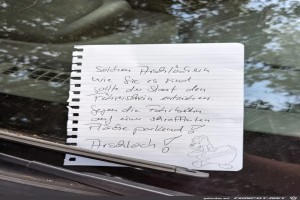 Solchen Arschlöchern
wie Sie es sind
sollte der Staat den
Führerschein entziehen
gegen die Fahrtrichtung
auf einer schraffierten
Fläche parkend!
Arschloch!